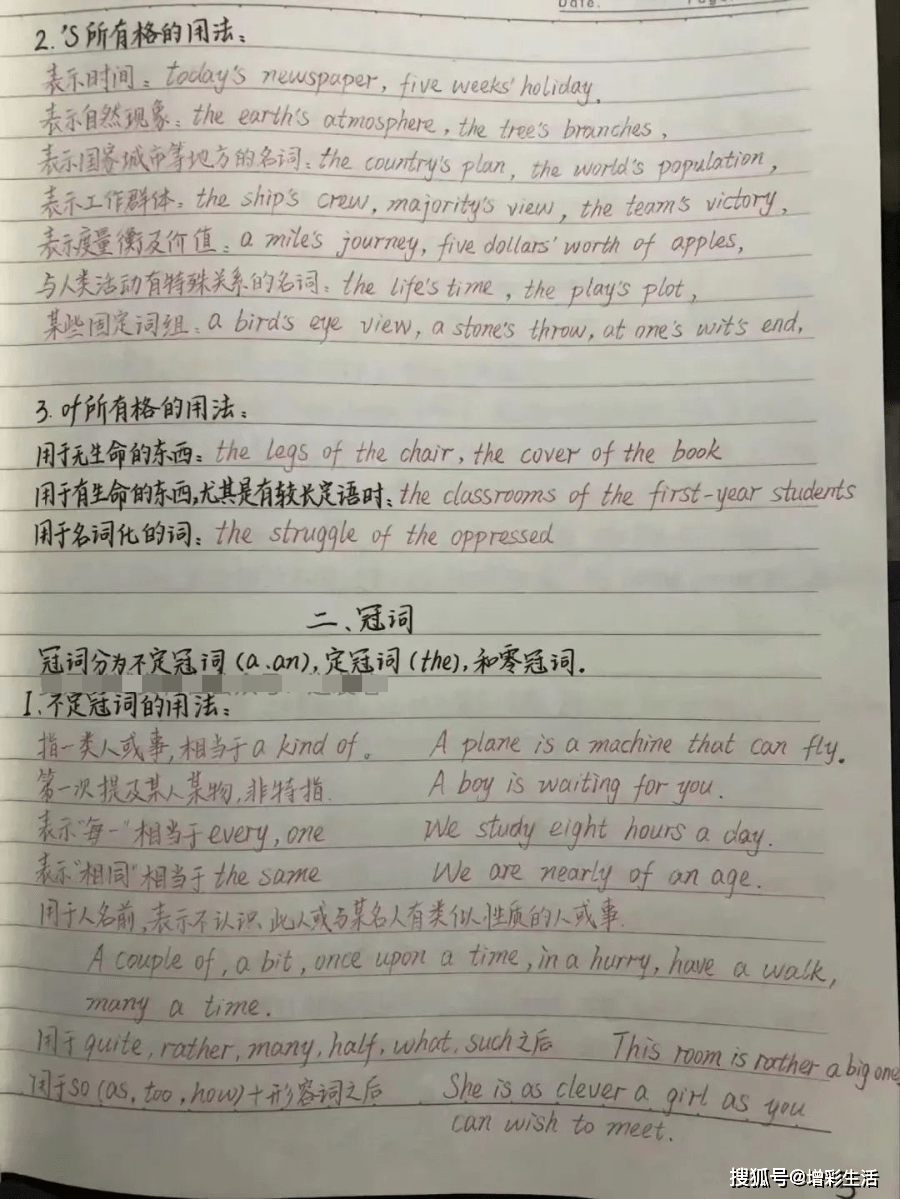 Date.
2. 's 所有格的用法:
表示时间: today's newspaper, five weeks' holiday.
表示自然现象: the earth's atmosphere, the tree's branches,
表示国家城市等地方的名词: the country's plan, the world's population,
表示工作群体: the ship's crew, majority's view, the team's victory,
表示度量衡及价值: a mile's journey, five dollars' worth of apples,
与人类活动有特殊关系的名词: the life's time, the play's plot,
某些固定词组: a bird's eye view, a stone's throw, at one's wit's end,
3. of所有格的用法:
用于无生命的东西: the legs of the chair, the cover of the book
用于有生命的东西,尤其是有较长定语时: the classrooms of the first-year students
用于名词化的词: the struggle of the oppressed
二、冠词
冠词分为不定冠词 (a、an), 定冠词 (the), 和零冠词.
I、不定冠词的用法:
指一类人或事, 相当于 a kind of。 A plane is a machine that can fly.
第一次提及某人某物, 非特指. A boy is waiting for you.
表示"每一"相当于 every, one We study eight hours a day.
表示"相同"相当于 the same We are nearly of an age.
用于人名前, 表示不认识此人或与某名人有类似性质的人或事.
A couple of, a bit, once upon a time, in a hurry, have a walk,
many a time.
用于 quite, rather, many, half, what, such之后 This room is rather a big one
用于 so (as, too, how) + 形容词之后 She is as clever a girl as you
can wish to meet.
搜狐号@增彩生活